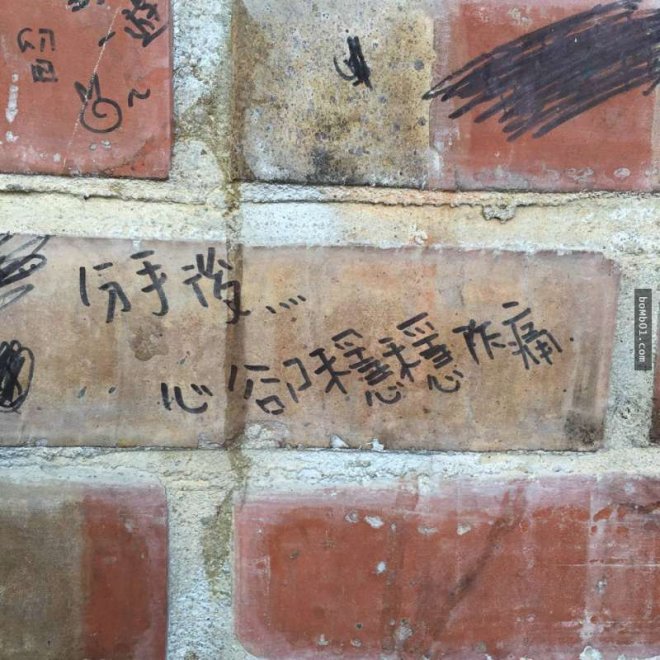 遊~
分手後....
心卻穩穩作痛.
boMb01.com